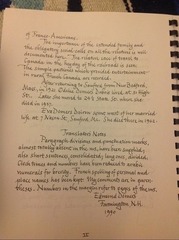 of Franco-Americans.
The importance of the extended family and
the obligatory social calls on all the relatives is well
documented here. The relative ease of travel to
Canada in the heyday of the railroads is
the simple pastimes which provided entertainment
in rural Franco Canada are recorded.
After returning to Sanford from New Bedford,
Mass., in 1921, Odilon Demers lived at 31 High
St. Later she moved to 283 Main St. where she
died in 1957.
Eva Demers Poirier spent most of her married
life at 7 Nason St. Sanford Me. She died there in 1965.
Translator's Notes
Paragraph divisions and punctuation marks,
almost totally absent in the ms, have been supplied;
also short sentences, consolidated; long ones, divided.
Clock times and numbers have been reduced to arabic
numerals for brevity. French spelling of personal and
place names has been kept. My comments are in paren-
theses. Numbers in the margin refer to pages of the ms.
Edmond Demers
Farmington, N.H.
1990